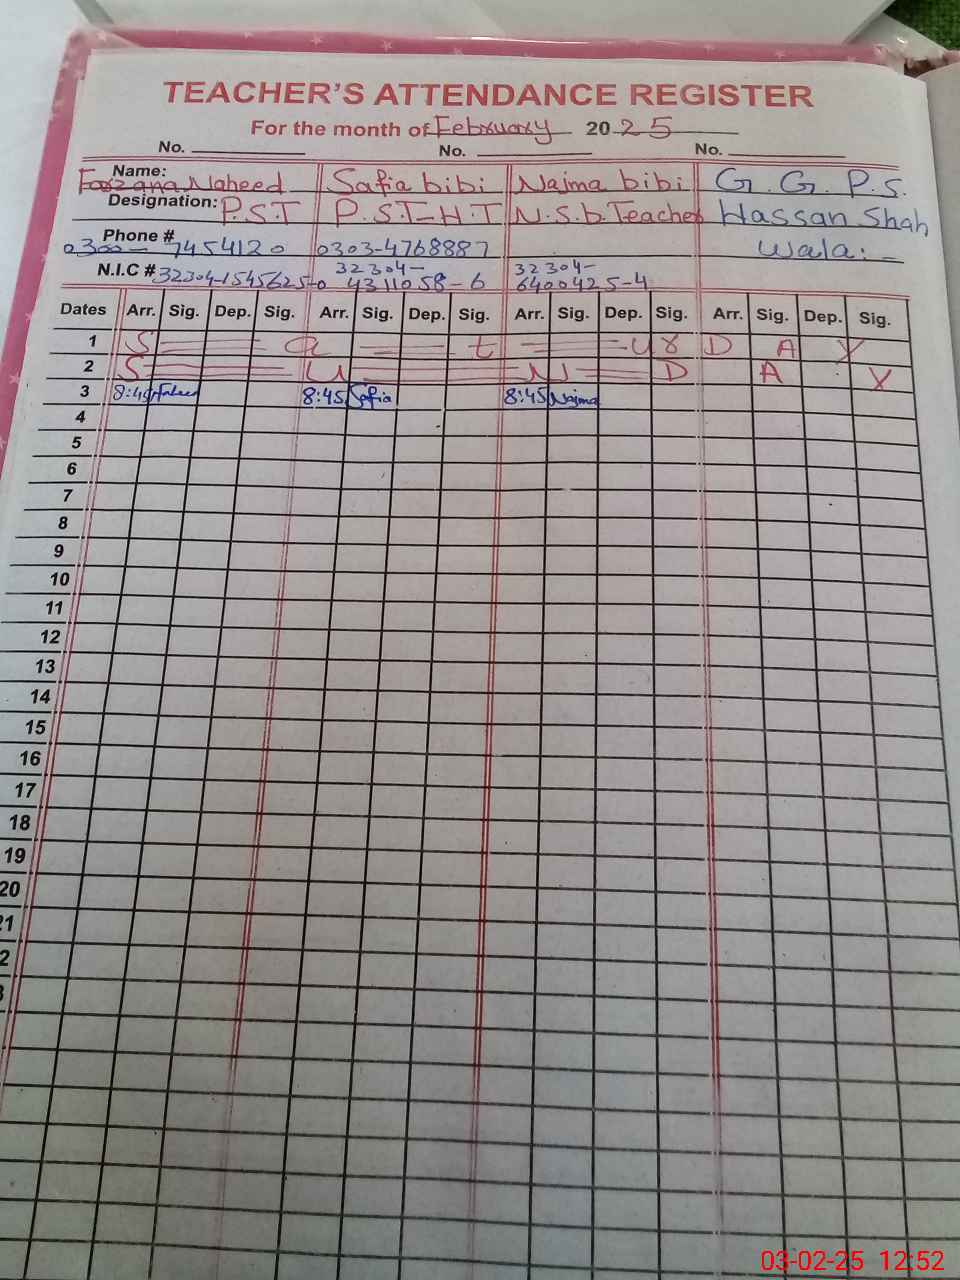 TEACHER'S ATTENDANCE REGISTER
For the month of February 2025
No. No. No.
Name: Farzana Naheed Safia bibi Najma bibi G.G.P.S.
Designation: P.S.T P.S.T-H.T N.S.b.Teacher Hassan Shah
Phone # 0300-7454120 0303-4768887 Wala:-
N.I.C # 32304-1545625-0 32304-4311058-6 32304-6400425-4
Dates Arr. Sig. Dep. Sig. Arr. Sig. Dep. Sig. Arr. Sig. Dep. Sig. Arr. Sig. Dep. Sig.
1 S a t u r D A Y
2 S U N D A Y
3 8:45 8:45 Safia 8:45 Najma
4
5
6
7
8
9
10
11
12
13
14
15
16
17
18
19
20
21
2
3
03-02-25 12:52